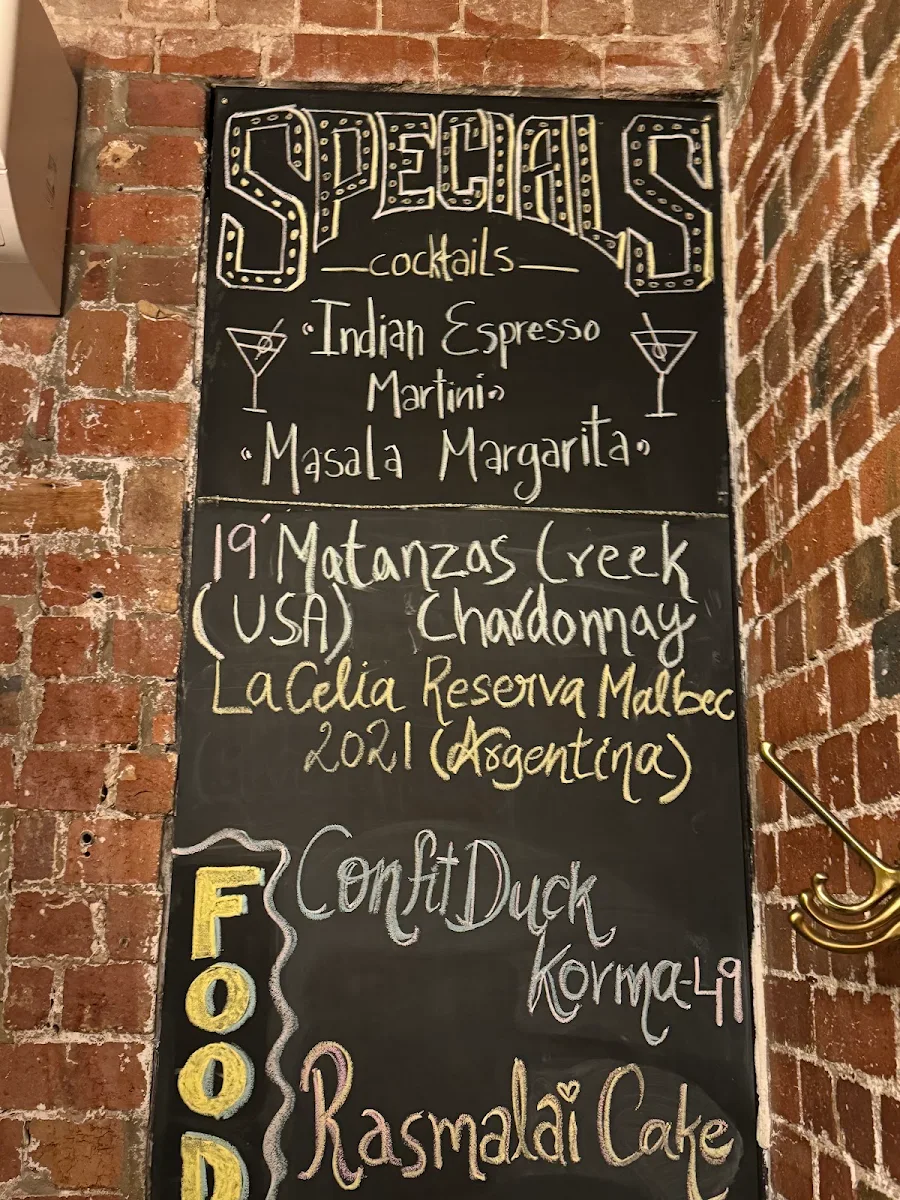 SPECIALS
cocktails
"Indian Espresso
Martini"
"Masala Margarita"
19' Matanzas Creek
(USA) Chardonnay
La Celia Reserva Malbec
2021 (Argentina)
FOOD
Confit Duck
Korma-49
Rasmalai Cake